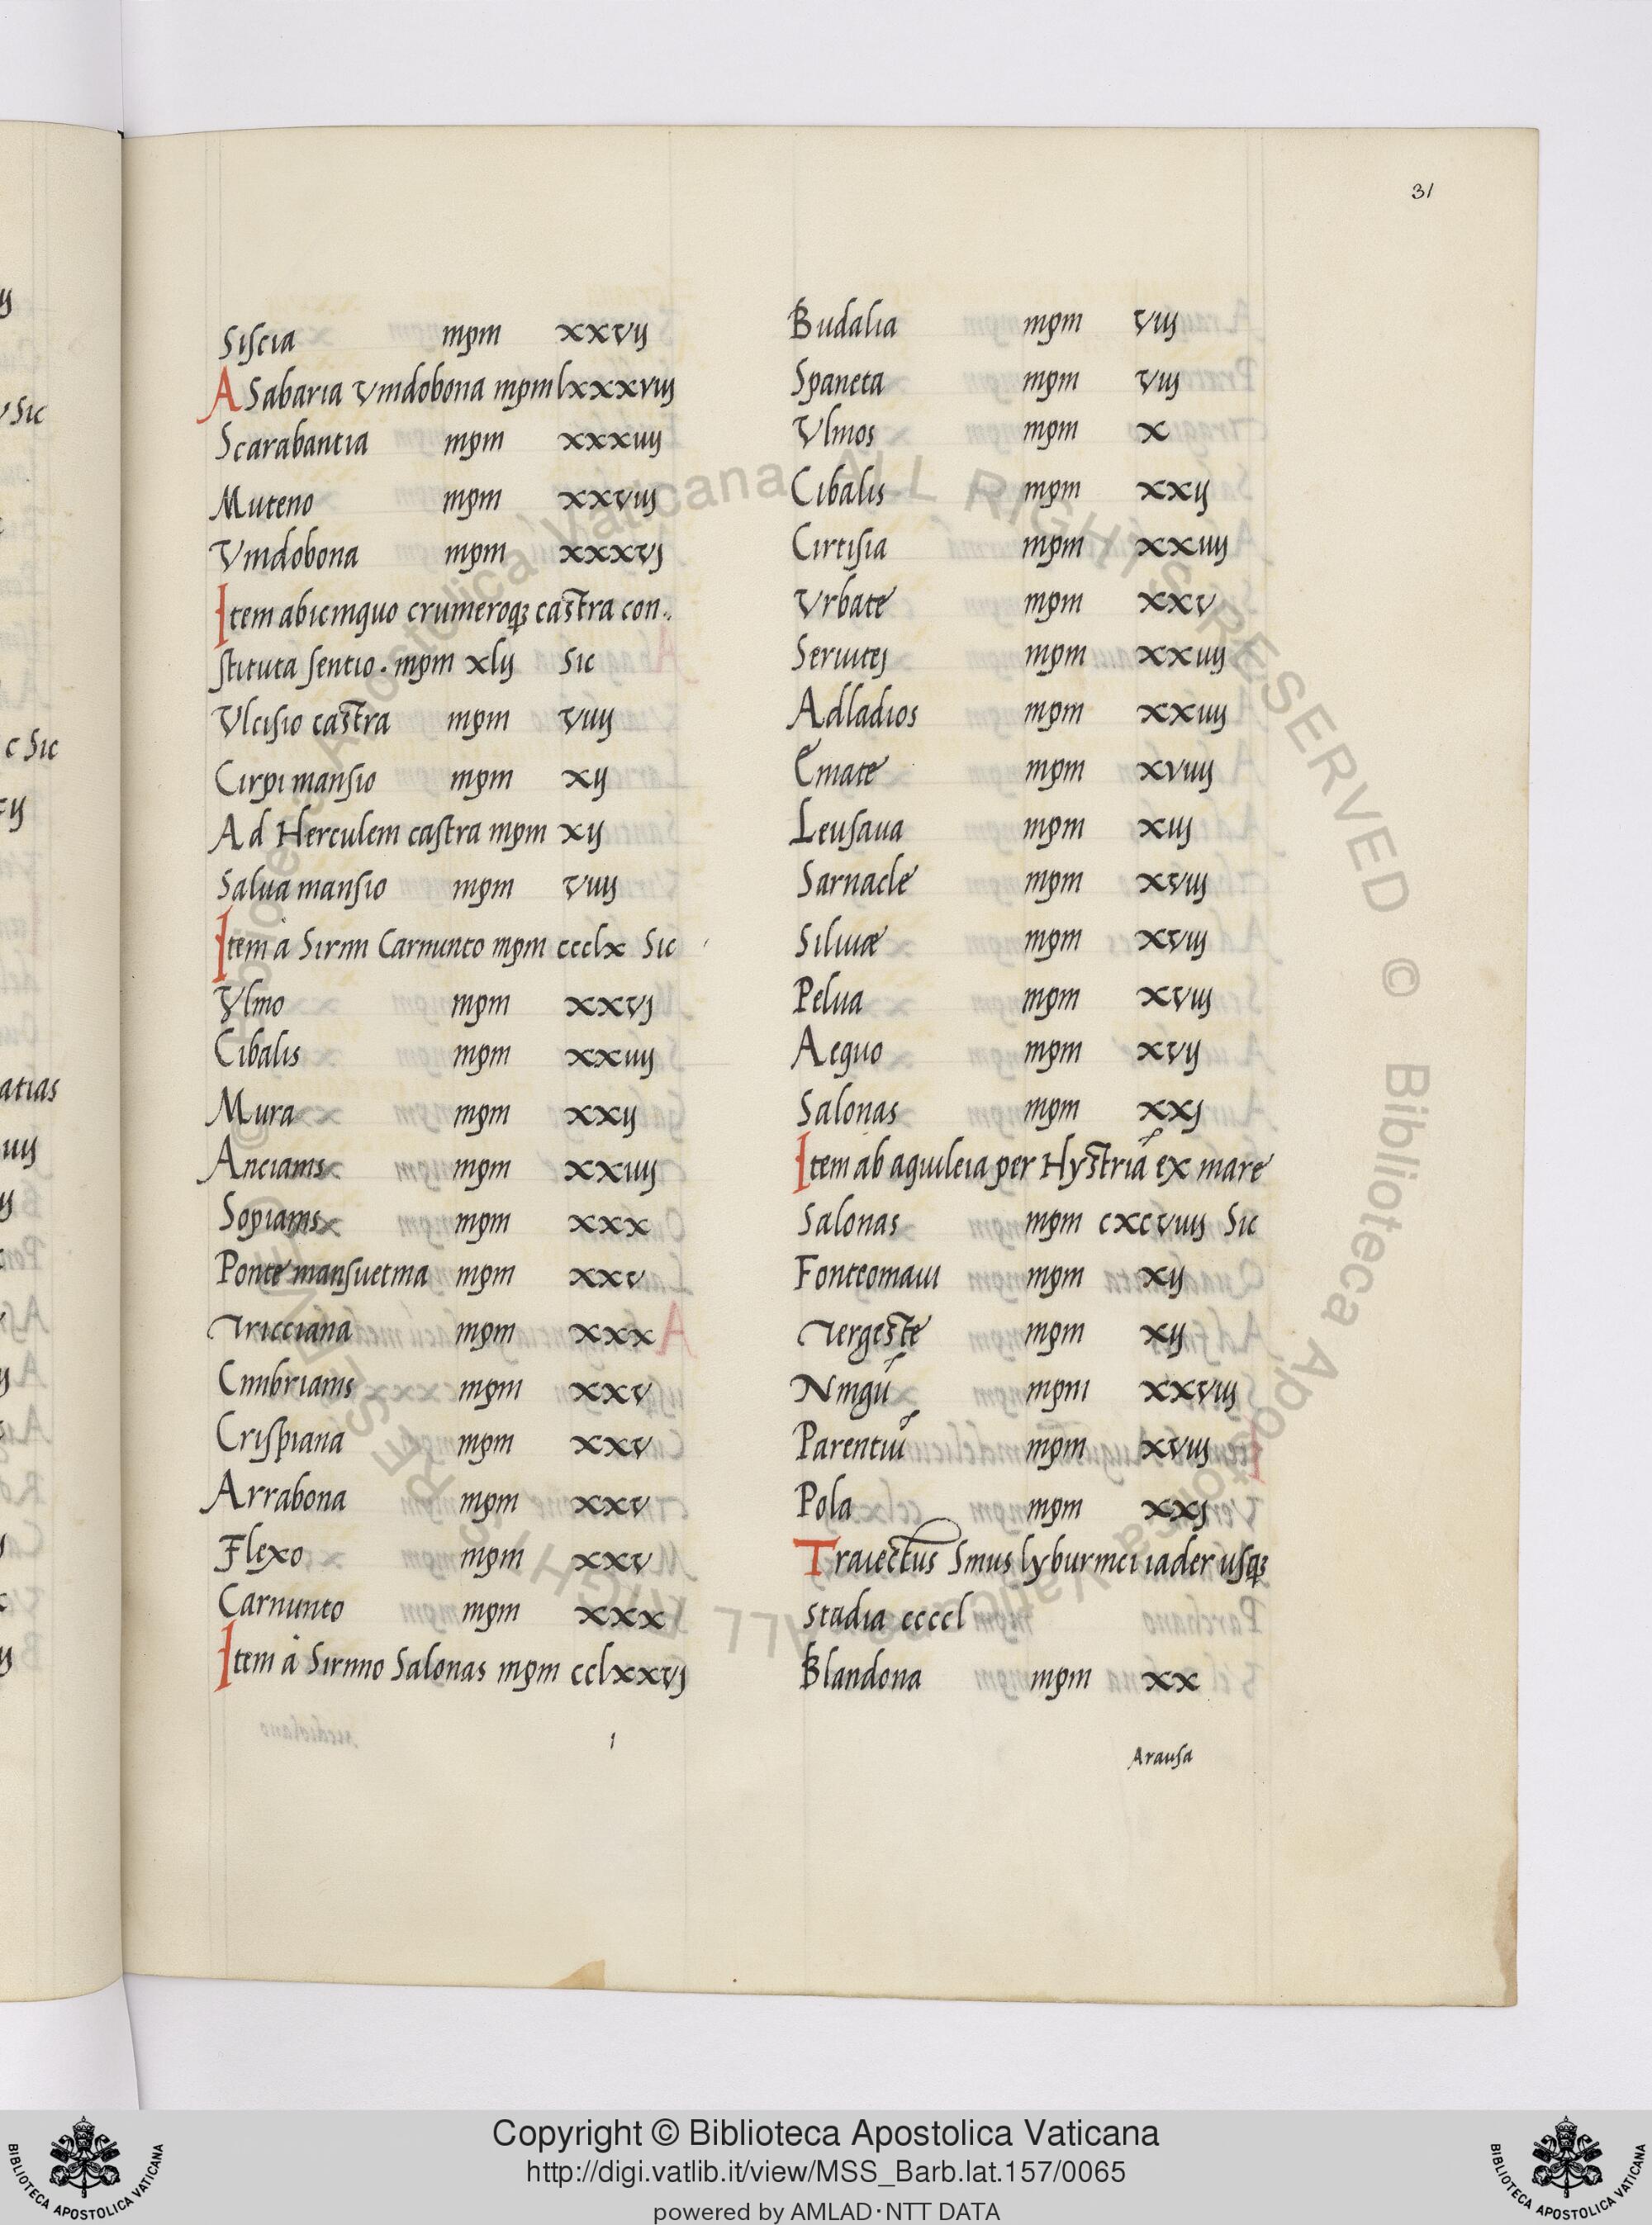 31
Siscia mpm xxvij
A Sabaria vindobona mpm lxxxviij
Scarabantia mpm xxxiiij
Muteno mpm xxviij
Vindobona mpm xxxvj
Item abicinquo crumeroq; castra con..
stituta sentio . mpm xlij Sic
Vlcisio castra mpm viiij
Cirpi mansio mpm xij
Ad Herculem castra mpm xij
Salua mansio mpm viiij
Item á Sirmi Carnunto mpm ccclx Sic
Vlmo mpm xxvj
Cibalis mpm xxiiij
Mura mpm xxij
Anciams mpm xxiiij
Sopiams mpm xxx
Ponte mansuetina mpm xxv
Tricciana mpm xxx
Cimbriams mpm xxv
Crispiana mpm xxv
Arrabona mpm xxv
Flexo mpm xxv
Carnunto mpm xxx
Item á Sirmio Salonas mpm cclxxvj
Budalia mpm viij
Spaneta mpm viij
Vlmos mpm x
Cibalis mpm xxij
Cirtisia mpm xxiiij
Vrbate mpm xxv
Seruitej mpm xxiiij
Adladios mpm xxiiij
Emate mpm xviiij
Leusaua mpm xiij
Sarnacle mpm xviij
Siluiæ mpm xviij
Pelua mpm xviij
Aequo mpm xvij
Salonas mpm xxj
Item ab aquileia per Hystriā ex mare
Salonas mpm cxcviiij Sic
Fonteomaui mpm xij
Tergeste mpm xij
Ningū mpm xxviij
Parentiū mpm xviij
Pola mpm xxj
Traiectus Sinus lyburnici iader usq;
stadia ccccl
Blandona mpm xx
Arausa
Copyright © Biblioteca Apostolica Vaticana
http://digi.vatlib.it/view/MSS_Barb.lat.157/0065
powered by AMLAD·NTT DATA
BIBLIOTECA APOSTOLICA VATICANA
BIBLIOTECA APOSTOLICA VATICANA